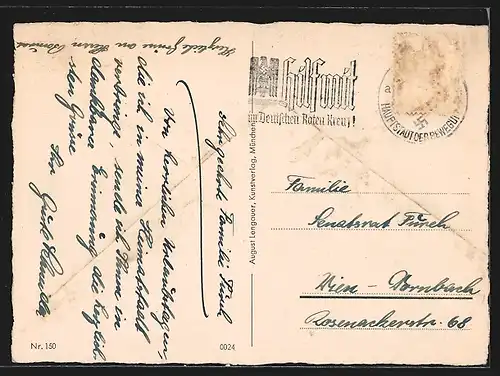 Herzliche Grüße an Herrn
Sehr geehrte Familie Fürch
Von herrlichen Urlaubstagen,
die ich in meiner Heimatstadt
verbringe, sende ich Ihnen in
dankbarer Erinnerung die herzlich-
sten Grüsse
Ihr
Nr. 150
0024
August Lengauer, Kunstverlag, München
Hilf mit
im Deutschen Roten Kreuz!
HAUPTSTADT DER BEWEGU
Familie
Senatsrat Fürch
Wien - Dornbach
Rosenackerstr. 68